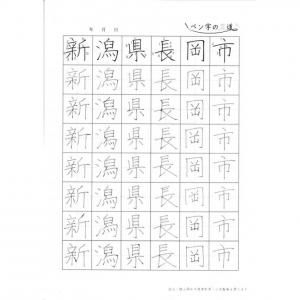 年 月 日
ペン字の道
新潟県長岡市
新潟県長岡市
新潟県長岡市
新潟県長岡市
新潟県長岡市
新潟県長岡市
新潟県長岡市
新潟県長岡市